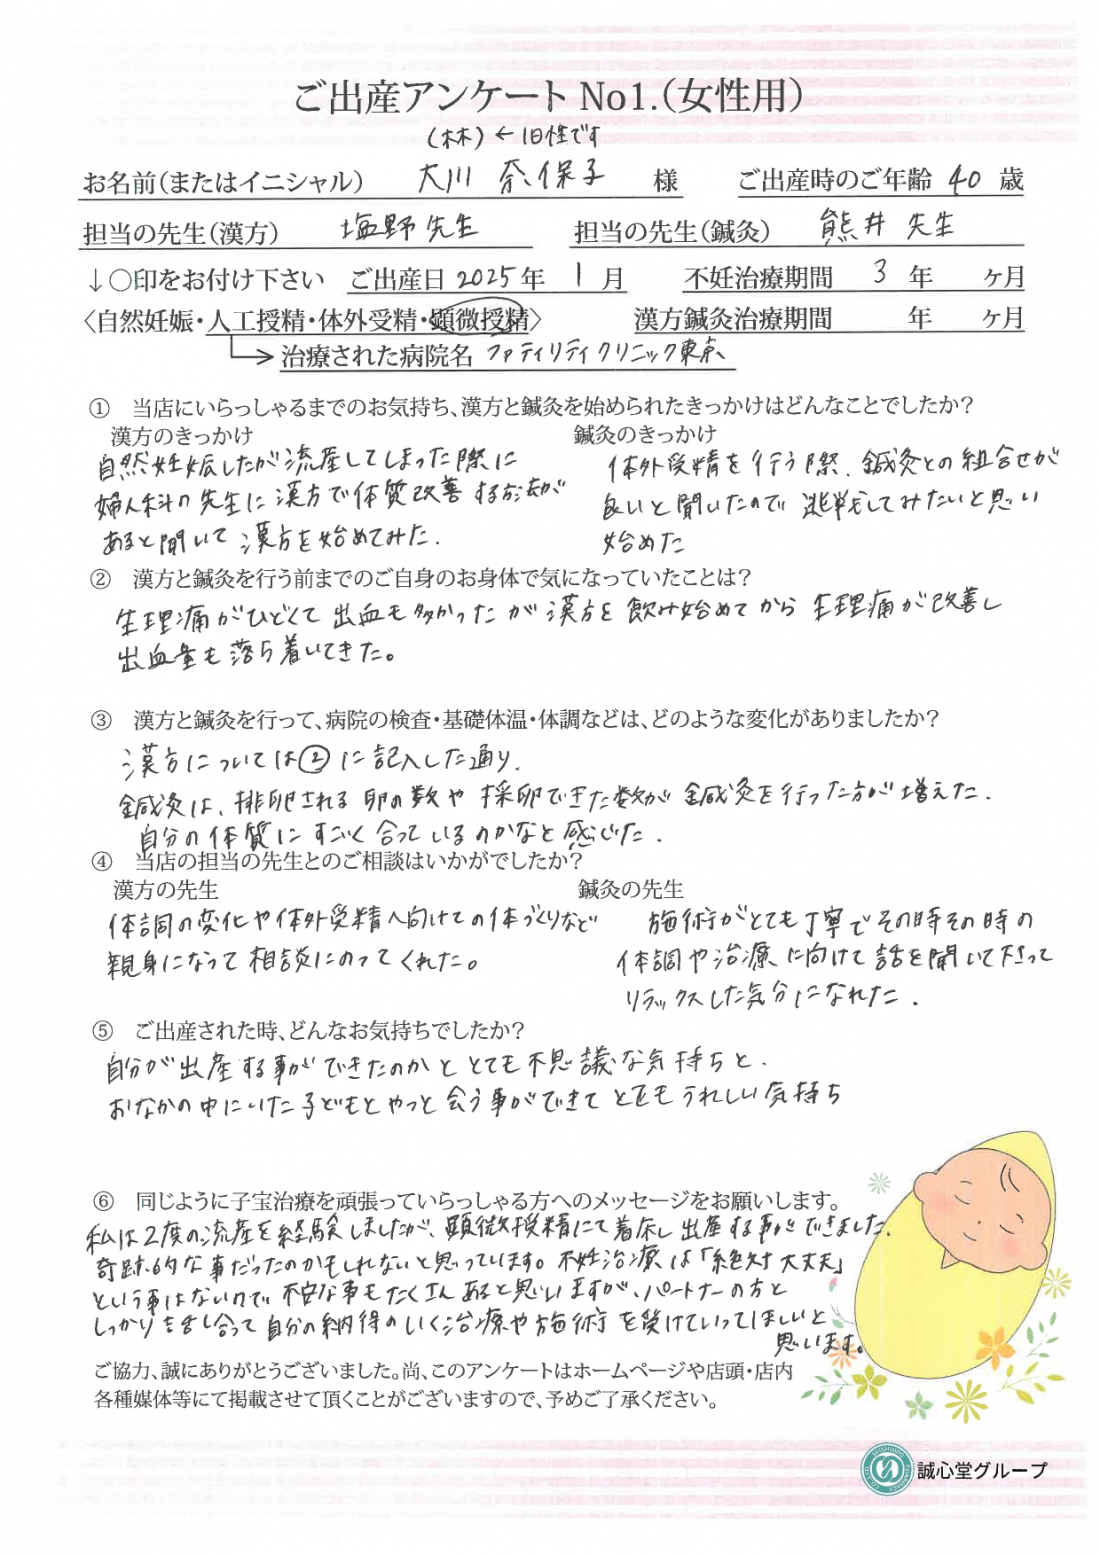 ご出産アンケート No1.(女性用)
(林) ← 旧性です
お名前(またはイニシャル) 大川 奈保子 様 ご出産時のご年齢 40 歳
担当の先生(漢方) 塩野先生 担当の先生(鍼灸) 熊井 先生
↓○印をお付け下さい ご出産日 2025年 1月 不妊治療期間 3年 ヶ月
〈自然妊娠・人工授精・体外受精・顕微授精〉 漢方鍼灸治療期間 年 ヶ月
治療された病院名 ファティリティクリニック東京
① 当店にいらっしゃるまでのお気持ち、漢方と鍼灸を始められたきっかけはどんなことでしたか?
漢方のきっかけ
自然妊娠したが流産してしまった際に
婦人科の先生に漢方で体質改善する方法が
あると聞いて漢方を始めてみた.
鍼灸のきっかけ
体外受精を行う際、鍼灸との組合せが
良いと聞いたので挑戦してみたいと思い
始めた
② 漢方と鍼灸を行う前までのご自身のお身体で気になっていたことは?
生理痛がひどくて出血も多かったが漢方を飲み始めてから生理痛が改善し
出血量も落ち着いてきた。
③ 漢方と鍼灸を行って、病院の検査・基礎体温・体調などは、どのような変化がありましたか?
漢方については②に記入した通り.
鍼灸は、排卵される卵の数や採卵できた数が鍼灸を行った方が増えた.
自分の体質にすごく合っているのかなと感じた.
④ 当店の担当の先生とのご相談はいかがでしたか?
漢方の先生
体調の変化や体外受精へ向けての体づくりなど
親身になって相談にのってくれた。
鍼灸の先生
施術がとても丁寧でその時その時の
体調や治療に向けて話を聞いて下さって
リラックスした気分になれた.
⑤ ご出産された時、どんなお気持ちでしたか?
自分が出産する事ができたのかととても不思議な気持ちと.
おなかの中にいた子どもとやっと会う事ができてとてもうれしい気持ち
⑥ 同じように子宝治療を頑張っていらっしゃる方へのメッセージをお願いします。
私は2度の流産を経験しましたが、顕微授精にて着床し出産する事ができました.
奇跡的な事だったのかもしれないと思っています。不妊治療は「絶対大丈夫」
という事はないので不安な事もたくさんあると思いますが、パートナーの方と
しっかり話し合って自分の納得のいく治療や施術を受けていってほしいと
思います。
ご協力、誠にありがとうございました。尚、このアンケートはホームページや店頭・店内
各種媒体等にて掲載させて頂くことがございますので、予めご了承ください。
誠心堂グループ